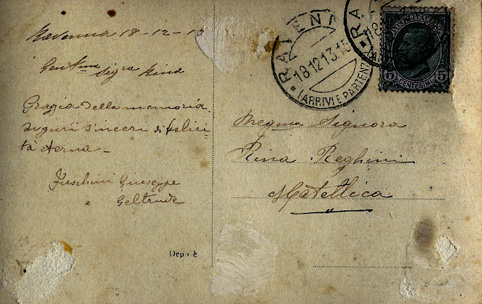 Ravenna 18-12-13
Gent.ma Sig.ra Rina
Grazie della memoria
auguri sinceri di felici
tà eterna -
Giuseppe
e Geltrude
Depo è
RAVENNA
18.12.13
(ARRIVI E PARTENZE)
POSTE ITALIANE
5 CENTESIMI 5
Pregma Signora
Rina Reghini
Matellica